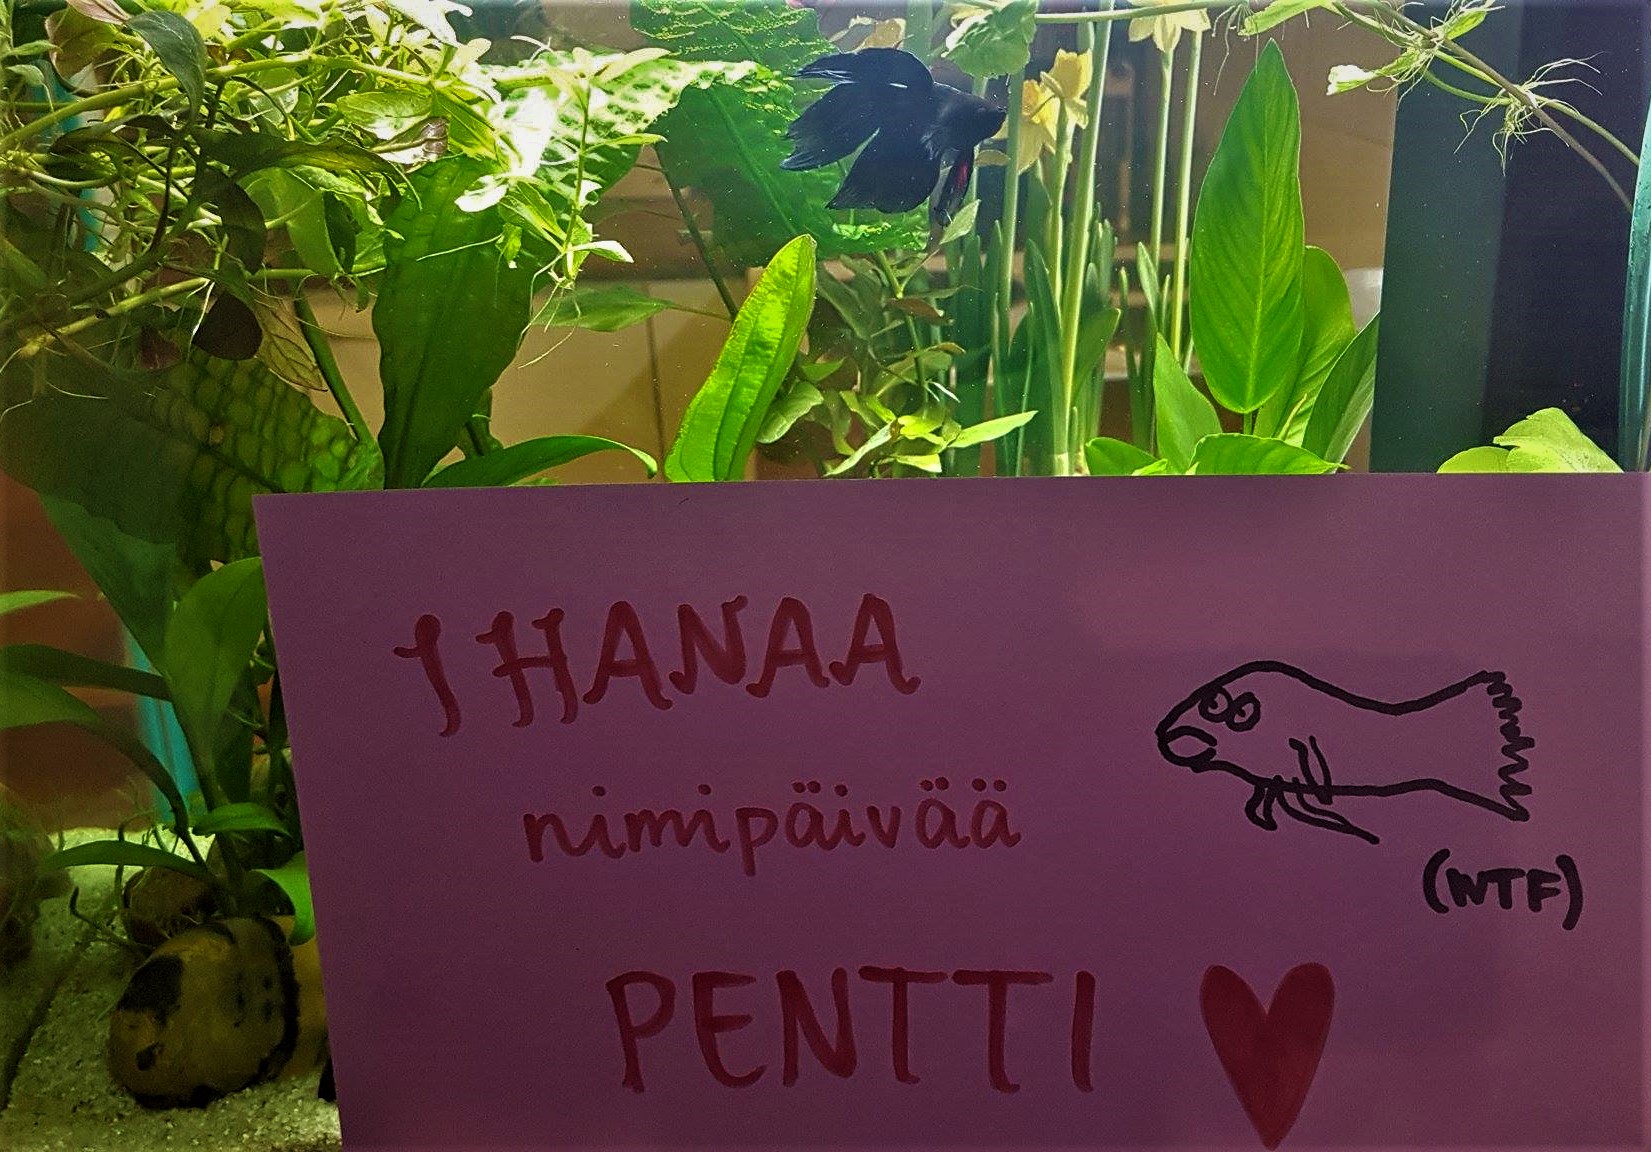 IHANAA
nimipäivää
(WTF)
PENTTI